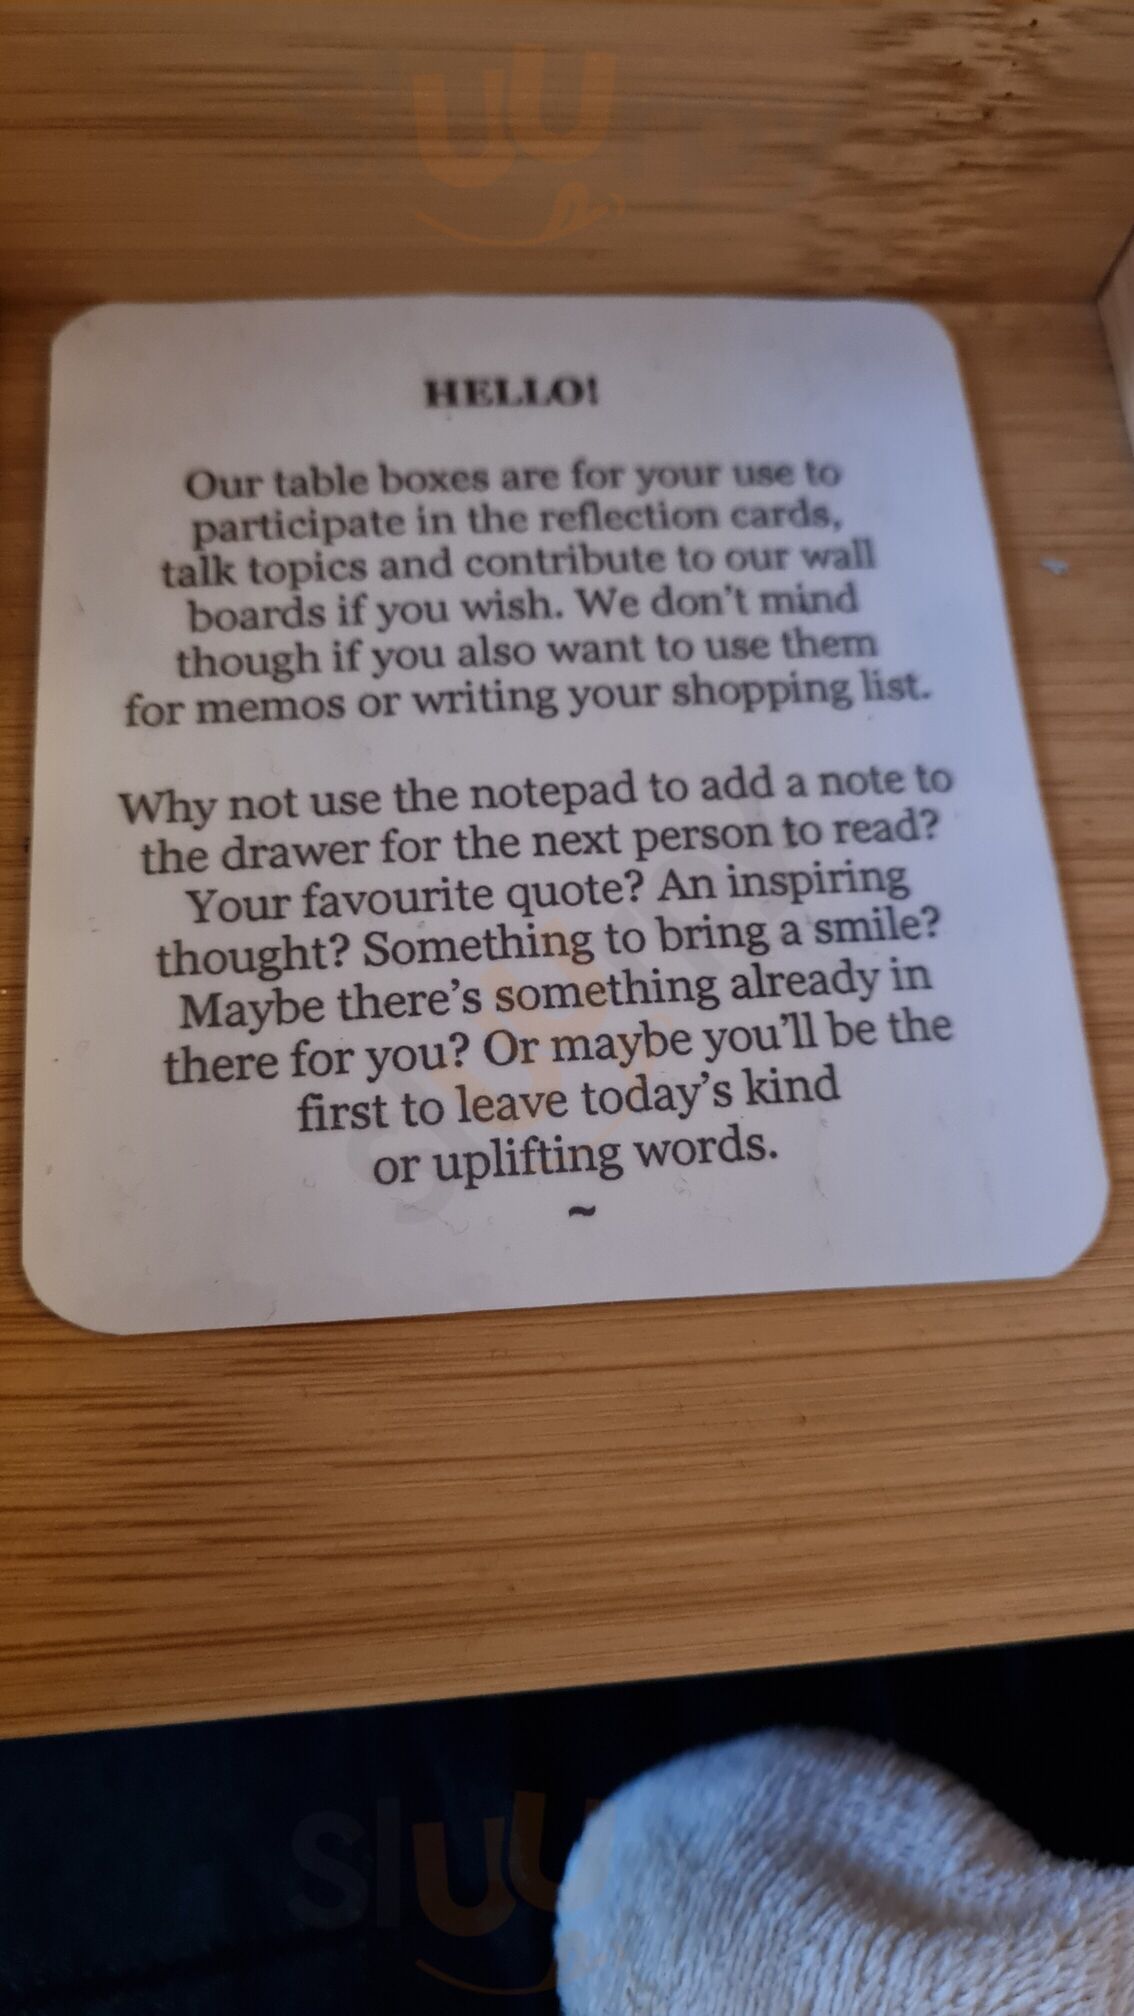 HELLO!
Our table boxes are for your use to
participate in the reflection cards,
talk topics and contribute to our wall
boards if you wish. We don't mind
though if you also want to use them
for memos or writing your shopping list.
Why not use the notepad to add a note to
the drawer for the next person to read?
Your favourite quote? An inspiring
thought? Something to bring a smile?
Maybe there's something already in
there for you? Or maybe you'll be the
first to leave today's kind
or uplifting words.
~